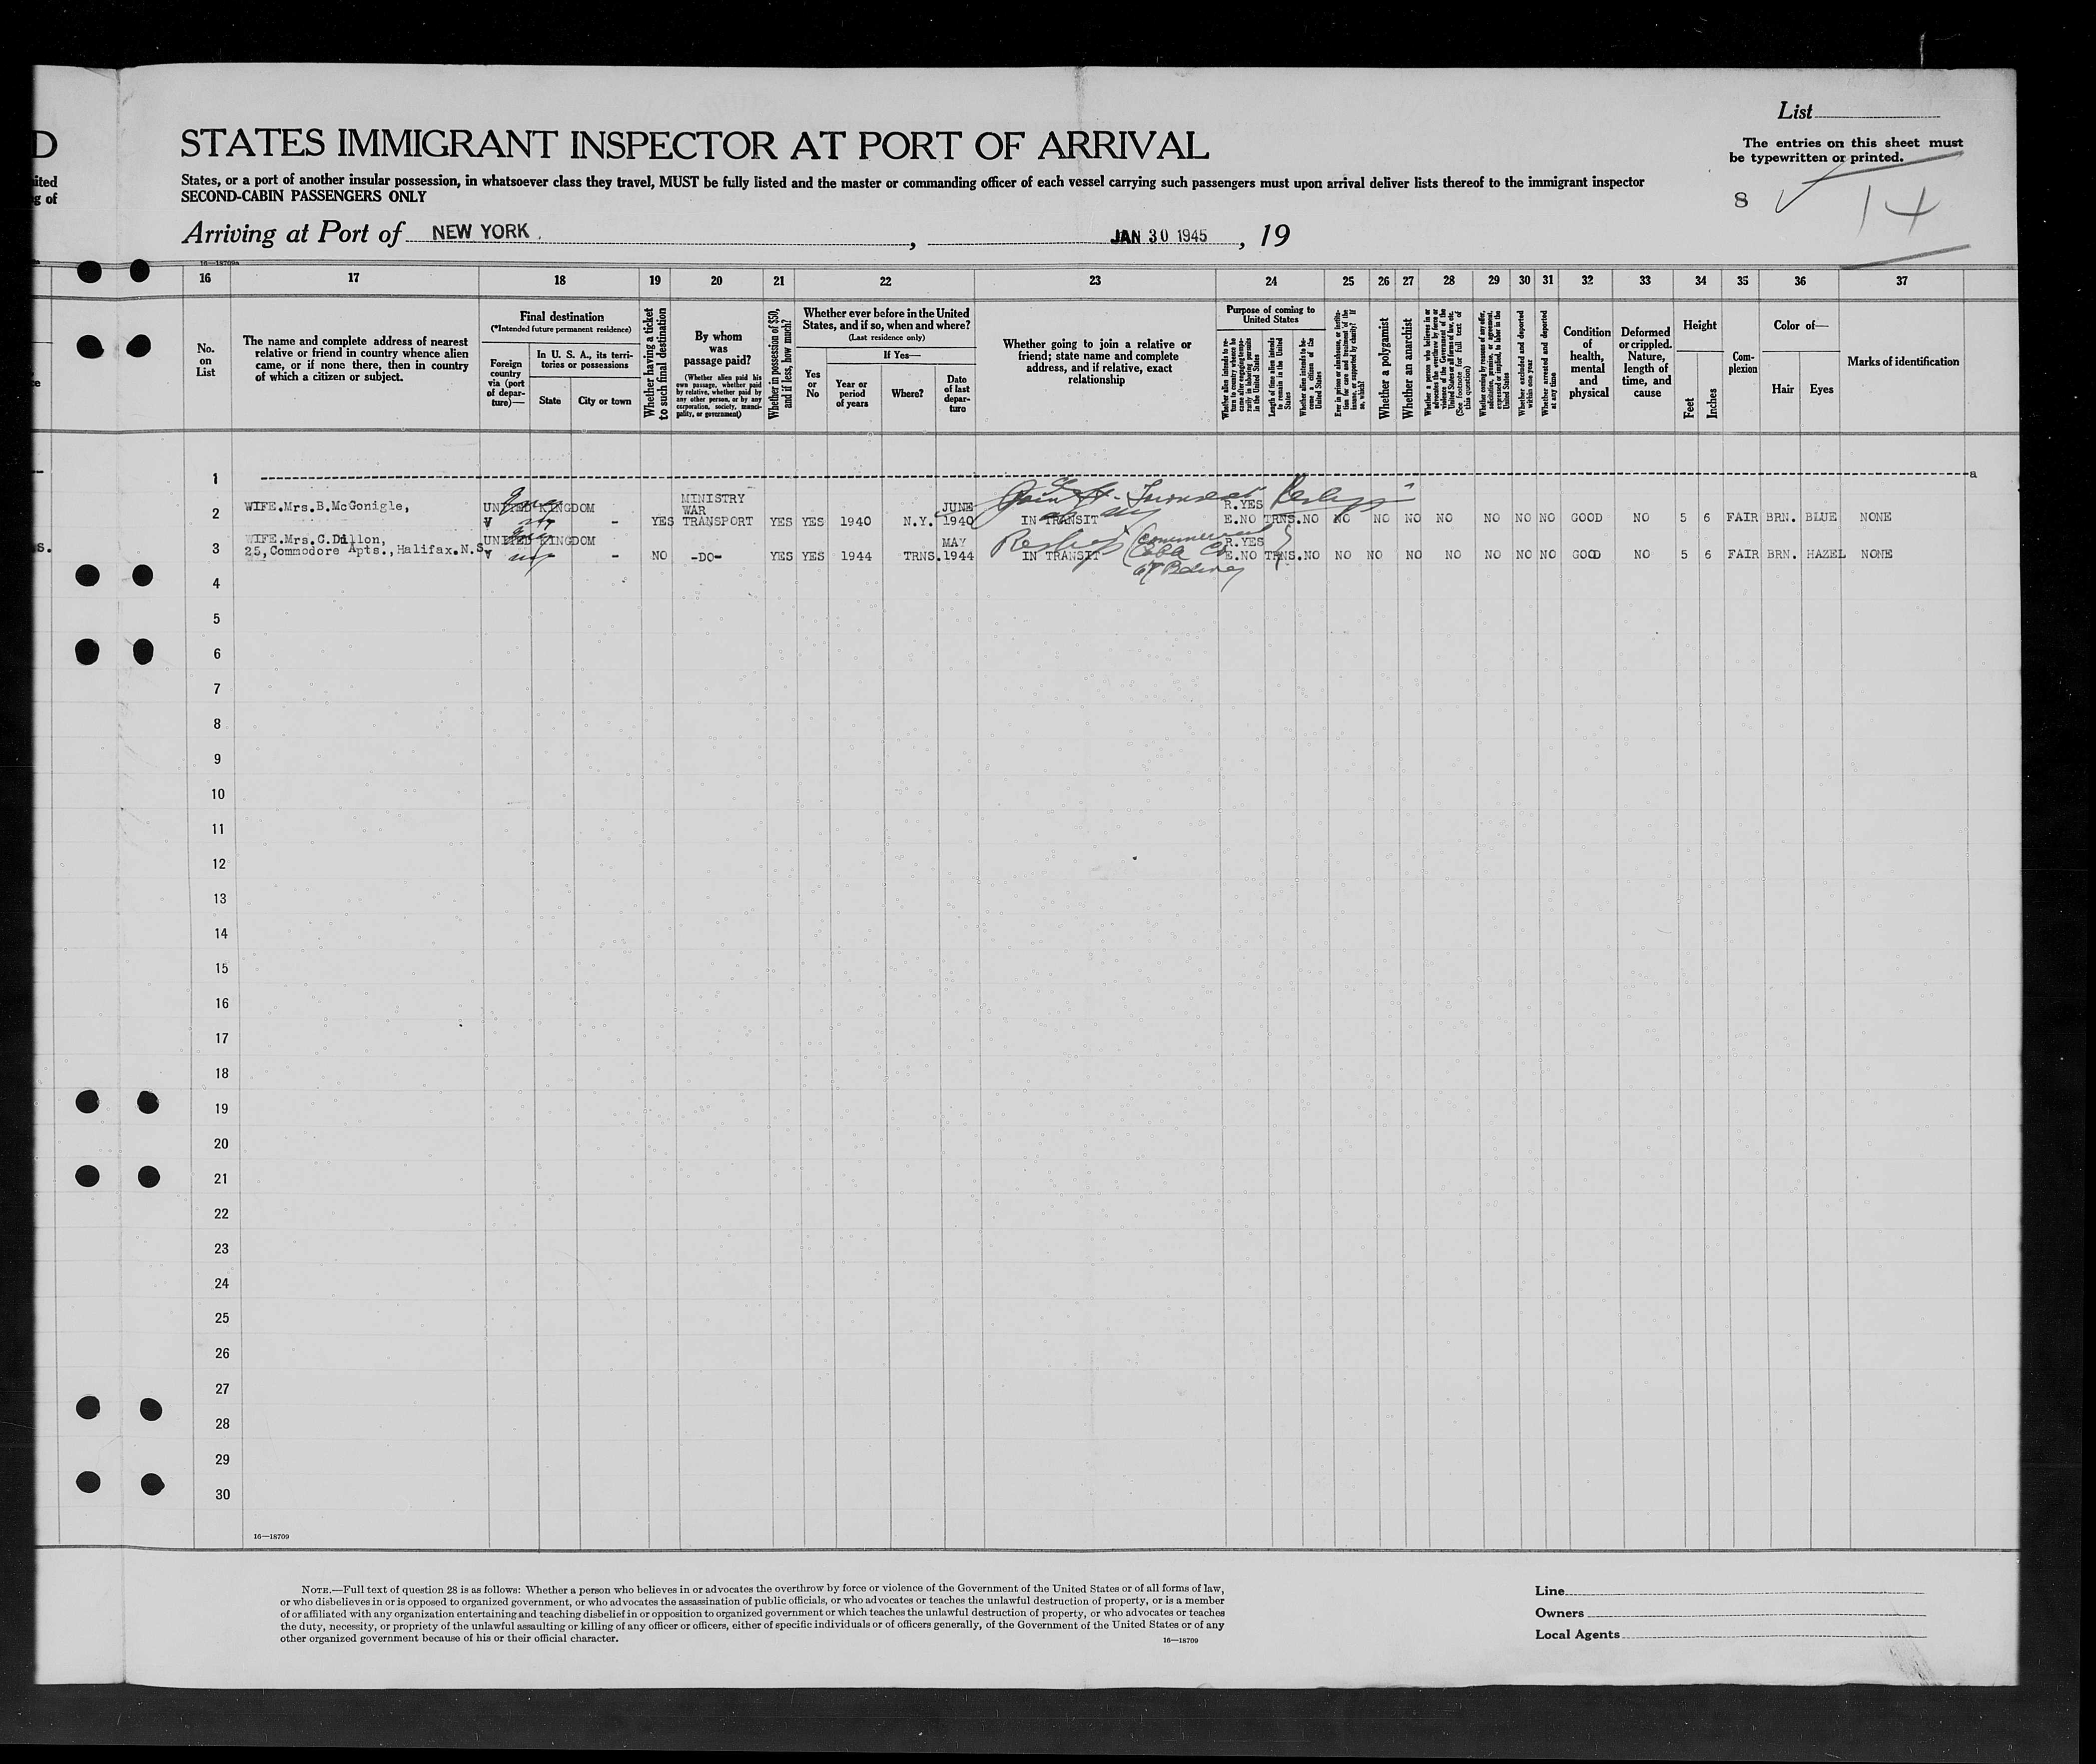 D
ited
g of
List
The entries on this sheet must
be typewritten or printed.
STATES IMMIGRANT INSPECTOR AT PORT OF ARRIVAL
States, or a port of another insular possession, in whatsoever class they travel, MUST be fully listed and the master or commanding officer of each vessel carrying such passengers must upon arrival deliver lists thereof to the immigrant inspector
SECOND-CABIN PASSENGERS ONLY
8 14
Arriving at Port of NEW YORK , JAN 30 1945 , 19
16—18709a
16 17 18 19 20 21 22 23 24 25 26 27 28 29 30 31 32 33 34 35 36 37
No.
on
List
The name and complete address of nearest
relative or friend in country whence alien
came, or if none there, then in country
of which a citizen or subject.
Final destination
(*Intended future permanent residence)
Foreign
country
via (port
of depar-
ture)—
In U. S. A., its terri-
tories or possessions
State
City or town
Whether having a ticket
to such final destination
By whom
was
passage paid?
(Whether alien paid his
own passage, whether paid
by relative, whether paid by
any other person, or by any
corporation, society, munici-
pality, or government)
Whether in possession of $50,
and if less, how much?
Whether ever before in the United
States, and if so, when and where?
(Last residence only)
Yes
or
No
If Yes—
Year or
period
of years
Where?
Date
of last
depar-
ture
Whether going to join a relative or
friend; state name and complete
address, and if relative, exact
relationship
Purpose of coming to
United States
Length of time alien intends
to remain in the United
States
Whether alien intends to be-
come a citizen of the
United States
Whether a polygamist
Whether an anarchist
Whether excluded and deported
within one year
Whether arrested and deported
at any time
Condition
of
health,
mental
and
physical
Deformed
or crippled.
Nature,
length of
time, and
cause
Height
Feet
Inches
Com-
plexion
Color of—
Hair
Eyes
Marks of identification
1
a
2 WIFE.Mrs.B.McGonigle,
UNITED KINGDOM
V - YES
MINISTRY
WAR
TRANSPORT YES YES 1940 N.Y.
JUNE
1940
IN TRANSIT
R.YES
E.NO TRNS.NO NO NO NO NO NO NO NO GOOD NO 5 6 FAIR BRN. BLUE NONE
s.
3 WIFE.Mrs.C.Dillon,
25,Commodore Apts.,Halifax.N.S.
UNITED KINGDOM
V - NO -DO- YES YES 1944 TRNS.
MAY
1944
IN TRANSIT
R.YES
E.NO TRNS.NO NO NO NO NO NO NO NO GOOD NO 5 6 FAIR BRN. HAZEL NONE
4
5
6
7
8
9
10
11
12
13
14
15
16
17
18
19
20
21
22
23
24
25
26
27
28
29
30
16—18709
NOTE.—Full text of question 28 is as follows: Whether a person who believes in or advocates the overthrow by force or violence of the Government of the United States or of all forms of law,
or who disbelieves in or is opposed to organized government, or who advocates the assassination of public officials, or who advocates or teaches the unlawful destruction of property, or is a member
of or affiliated with any organization entertaining and teaching disbelief in or opposition to organized government or which teaches the unlawful destruction of property, or who advocates or teaches
the duty, necessity, or propriety of the unlawful assaulting or killing of any officer or officers, either of specific individuals or of officers generally, of the Government of the United States or of any
other organized government because of his or their official character.
16—18709
Line
Owners
Local Agents